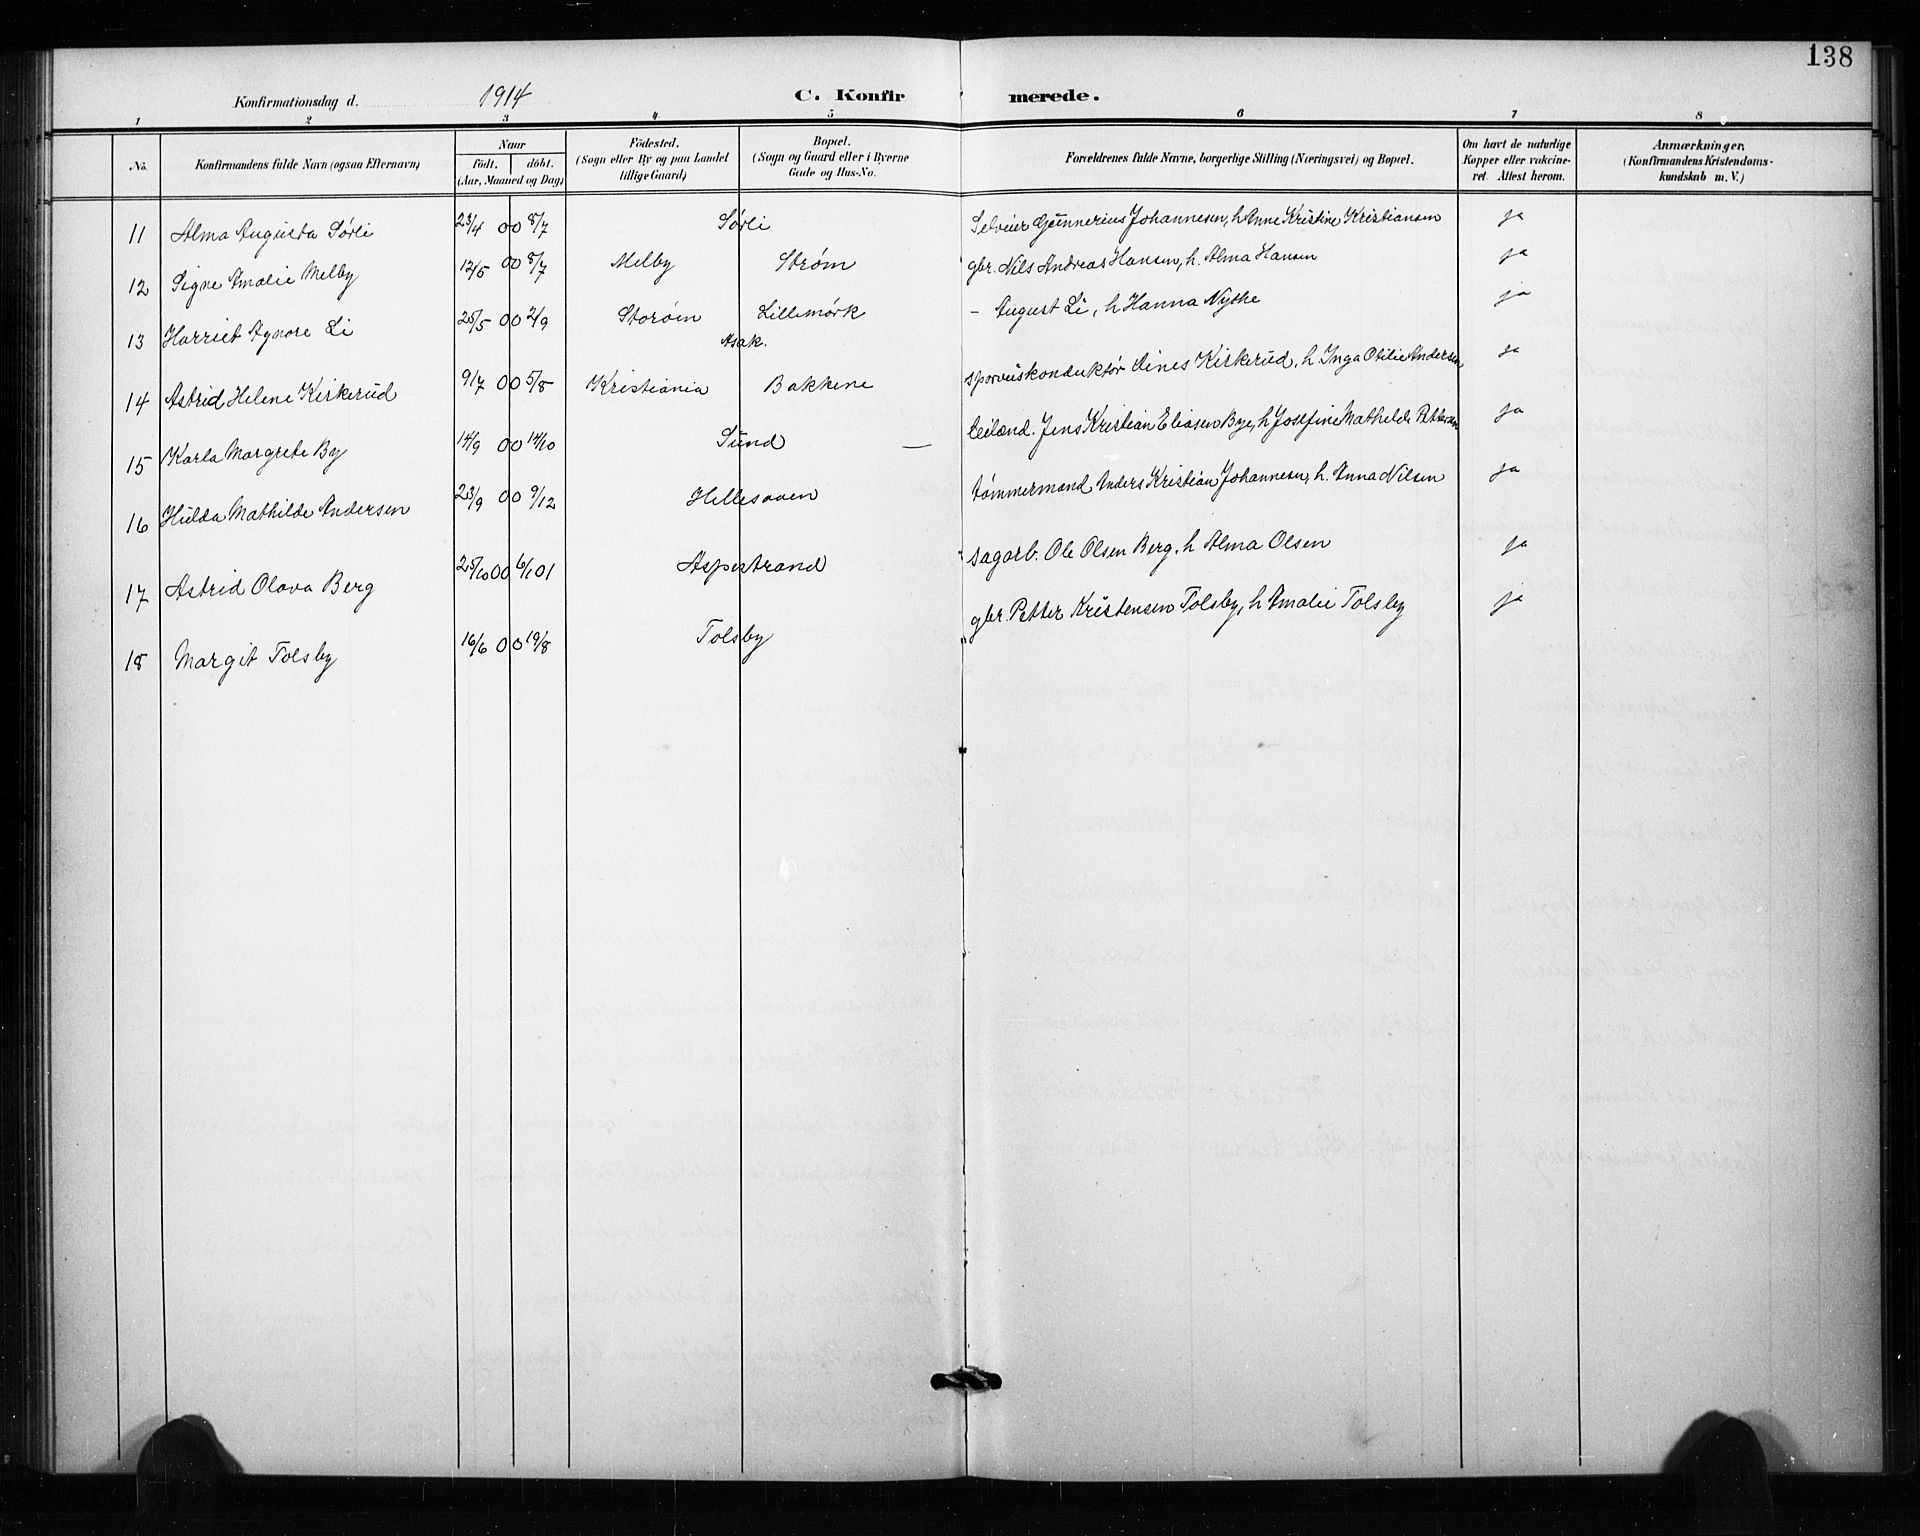 138
Konfirmationsdag d. 1914 C. Konfirmerede.
1 2 3 4 5 6 7 8
No. Konfirmandens fulde Navn (ogsaa Efternavn) Naar födt. döbt. (Aar, Maaned og Dag) Födested. (Sogn eller By og paa Landet tillige Gaard) Bopæl. (Sogn og Gaard eller i Byerne Gade og Hus-No. Forældrenes fulde Navne, borgerlige Stilling (Næringsvei) og Bopæl. Om havt de naturlige Kopper eller vakcineret. Attest herom. Anmærkninger, (Konfirmandens Kristendomskundskab m. V.)
11 Alma Augusta Sørli 23/4 00 8/7 Sørli Selveier Gunnerius Johannesen, h Anne Kristine Kristiansen ja
12 Signe Amalie Melby 12/5 00 8/7 Melby Strøm gbr. Nils Andreas Hansen, h. Alma Hansen ja
13 Harriet Agnore Li 25/5 00 2/9 Storøen Lillemørk Asak. – August Li, h Hanna Nythe ja
14 Astrid Helene Kirkerud 9/7 00 5/8 Kristiania Bakkene sporveiskonduktør Kirkerud, h. Inga Otilie Andersen ja
15 Karla Margrete By 14/9 00 14/10 Sund — leilænd. Jens Kristian Eliasen Bye, h Josefine Mathilde ja
16 Hulda Mathilde Andersen 23/9 00 9/12 Hillesaven tømmermand Anders Kristian Johannesen, h. Anna Nilsen ja
17 Astrid Olava Berg 25/10 00 6/1 01 Aspestrand sagarb. Ole Olsen Berg, h Alma Olsen ja
18 Margit Tolsby 16/6 00 19/8 Tolsby gbr. Petter Kristensen Tolsby, h Amalie Tolsby ja